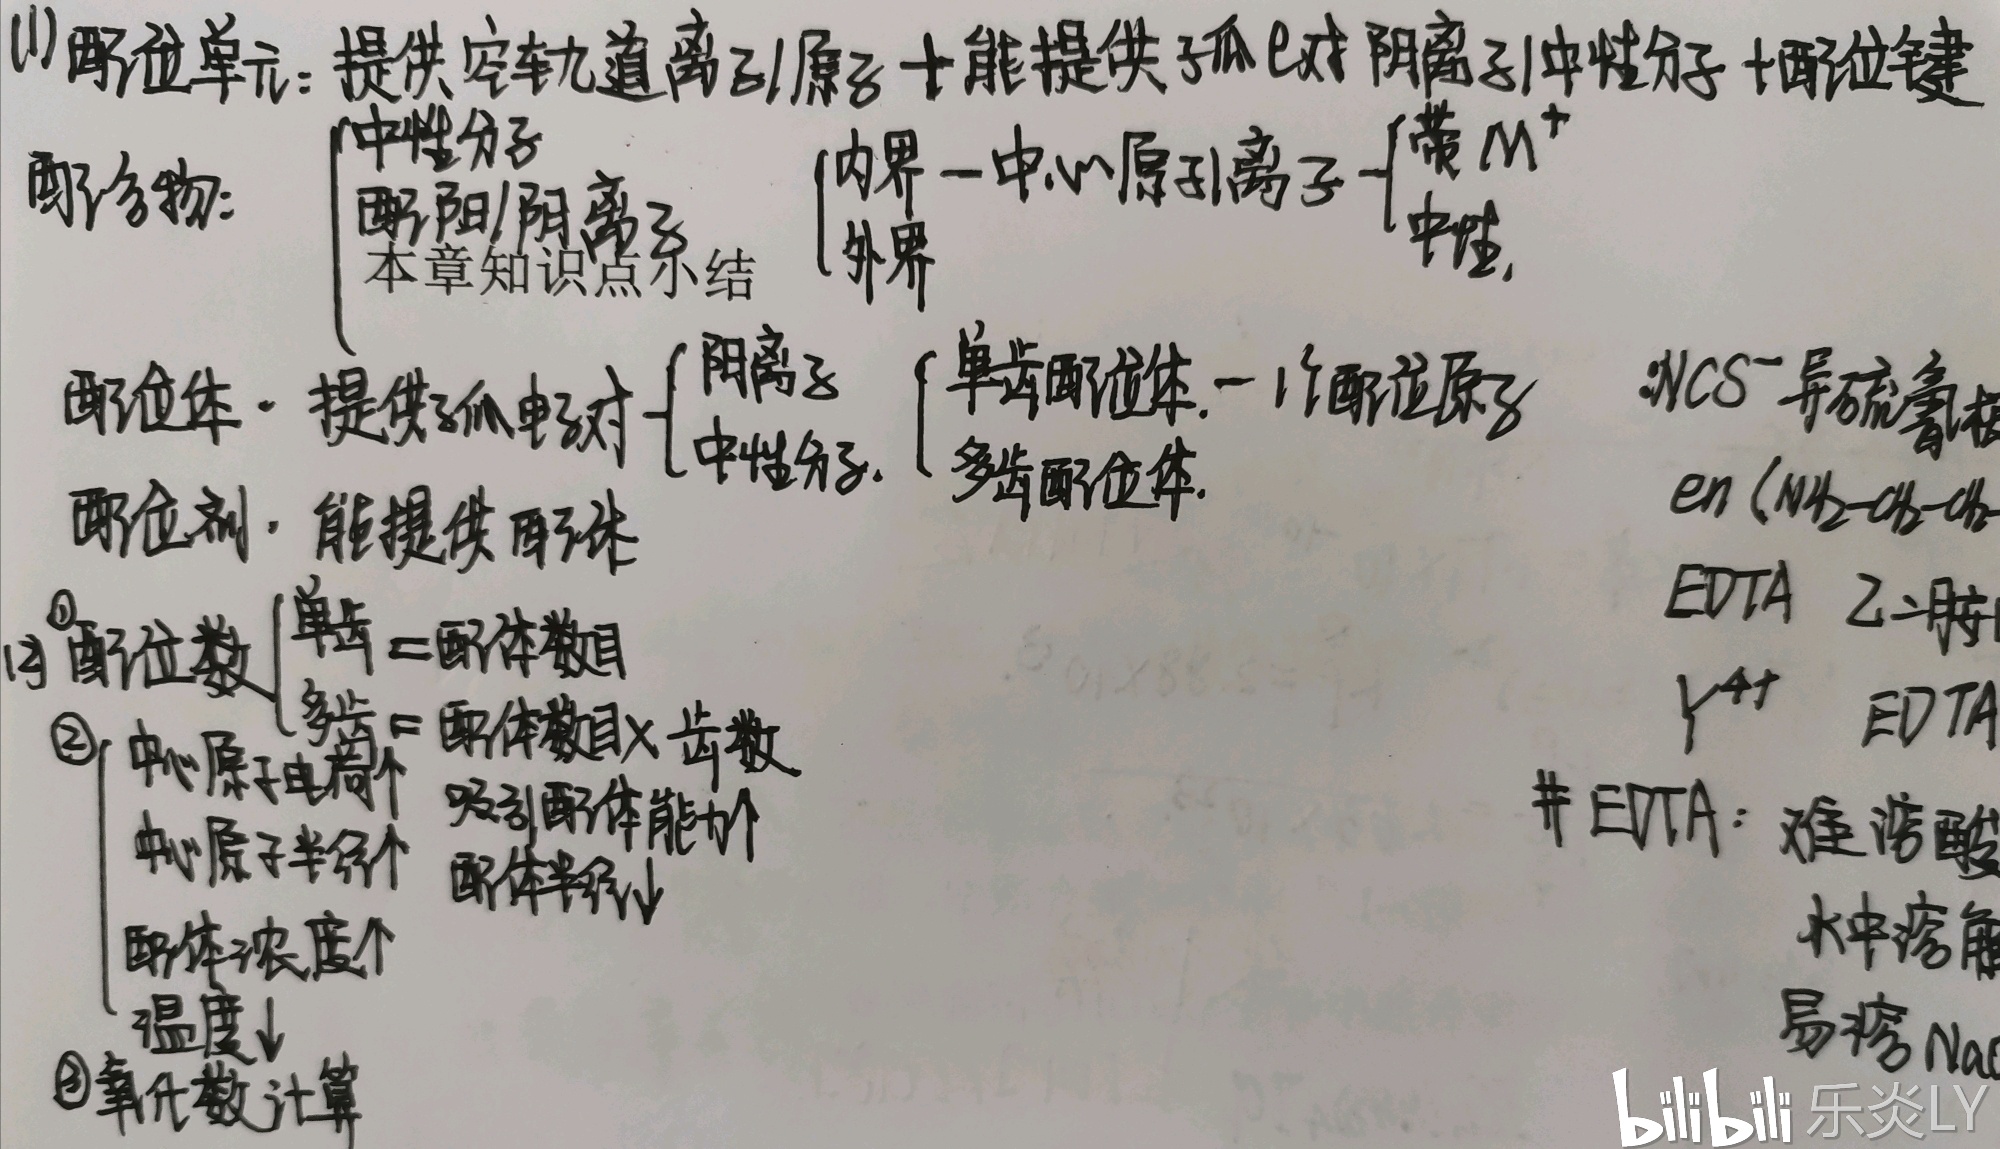 (1)配位单元:提供空轨道离子/原子+能提供孤e对阴离子/中性分子+配位键
配合物: 中性分子 内界-中心原子/离子 带M⁺
配阳/阴离子 外界 中性.
本章知识点小结
配位体·提供孤电子对 阴离子 单齿配位体.-1个配位原子 :NCS⁻异硫氰根
中性分子. 多齿配位体. en(NH₂-CH₂-CH₂-
配位剂·能提供配体
EDTA 乙二胺
(2)①配位数 单齿=配体数目
多齿=配体数目×齿数 Y⁴⁺ EDTA
②中心原子电荷↑ 吸引配体能力↑
#EDTA:难溶酸
中心原子半径↑ 配体半径↓
配体浓度↑ 水中溶解
温度↓ 易溶Na
③氧化数计算
bilibili 乐炎LY